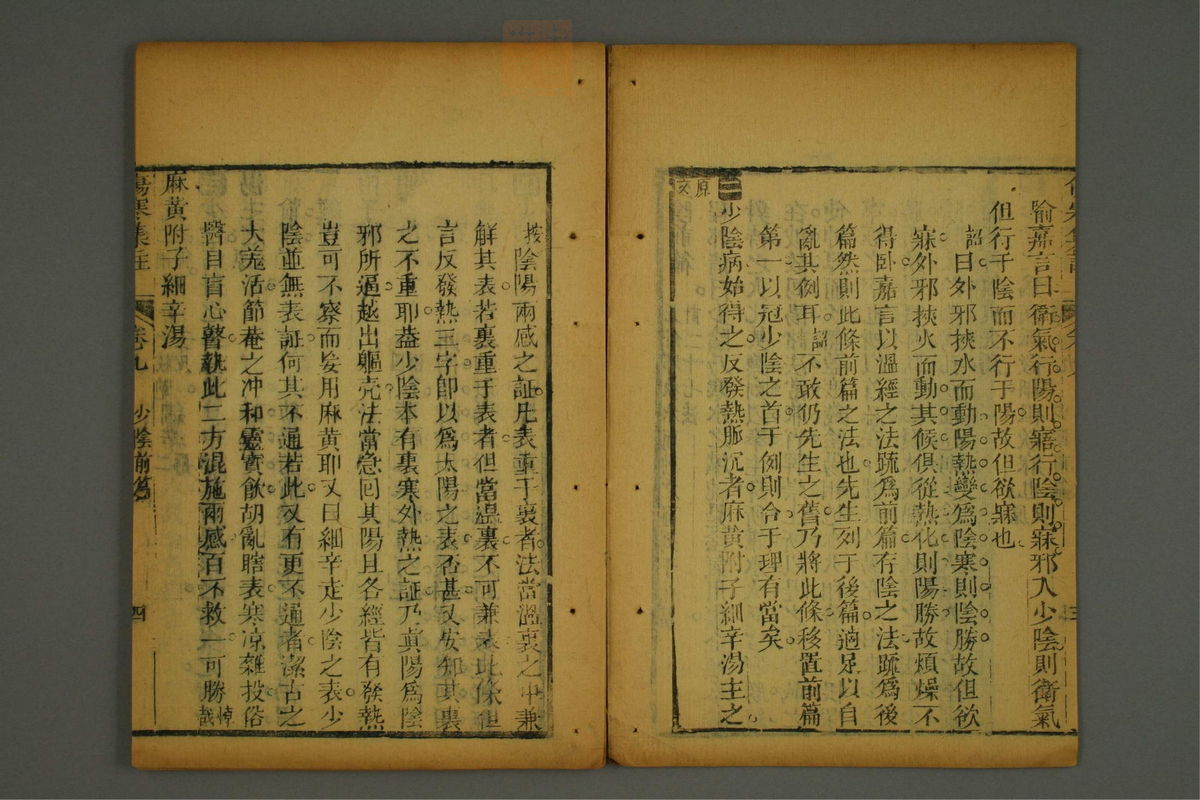 喻嘉言曰衛氣行陽則寤行陰則寐邪入少陰則衛氣
但行于陰而不行于陽故但欲寐也
詔曰外邪挾水而動陽熱變爲陰寒則陰勝故但欲
寐外邪挾火而動其候俱從熱化則陽勝故煩燥不
得卧嘉言以溫經之法疏爲前篇存陰之法疏爲後
篇然則此條前篇之法也先生列于後篇適足以自
亂其例耳詔不敢仍先生之舊乃將此條移置前篇
第一以冠少陰之首于例則合于理有當矣
原文
少陰病始得之反發熱脈沉者麻黃附子細辛湯主之
按陰陽兩感之証凡表重于裏者法當溫裏之中兼
解其表若裏重于表者但當溫裏不可兼表此條但
言反發熱三字卽以爲太陽之表否甚又安知其裏
之不重耶蓋少陰本有裏寒外熱之証乃眞陽爲陰
邪所逼越出軀壳法當急回其陽且各經皆有發熱
豈可不察而妄用麻黃耶又曰細辛走少陰之表少
陰並無表証何其不通若此又有更不通者潔古之
大羗活節菴之冲和靈寳飲胡亂瞎表寒凉雜投俗
醫目盲心瞽執此二方混施兩感百不救一可勝悼哉
麻黃附子細辛湯
傷寒集註
卷九
少陰前篇
四